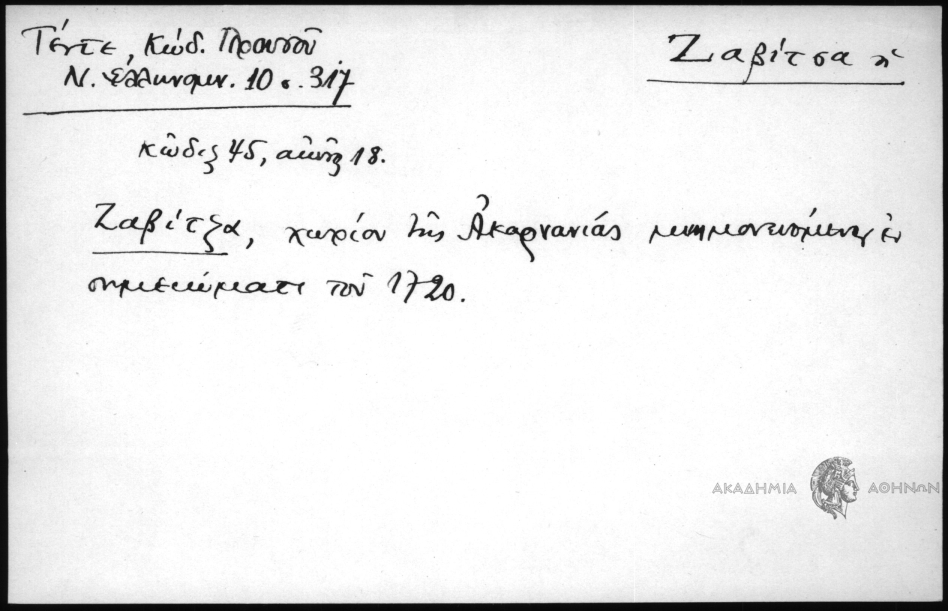 Γέντε, Κώδ. Προυσοῦ
Ν. Ἑλληνομν. 10 σ. 317
Ζαβίτσα ἡ
κῶδιξ 45, 18.
Ζαβίτζα, χωρίον τῆς Ἀκαρνανίας μνημονευόμενον ἐν
σημειώματι τοῦ 1720.
ΑΚΑΔΗΜΙΑ ΑΘΗΝΩΝ